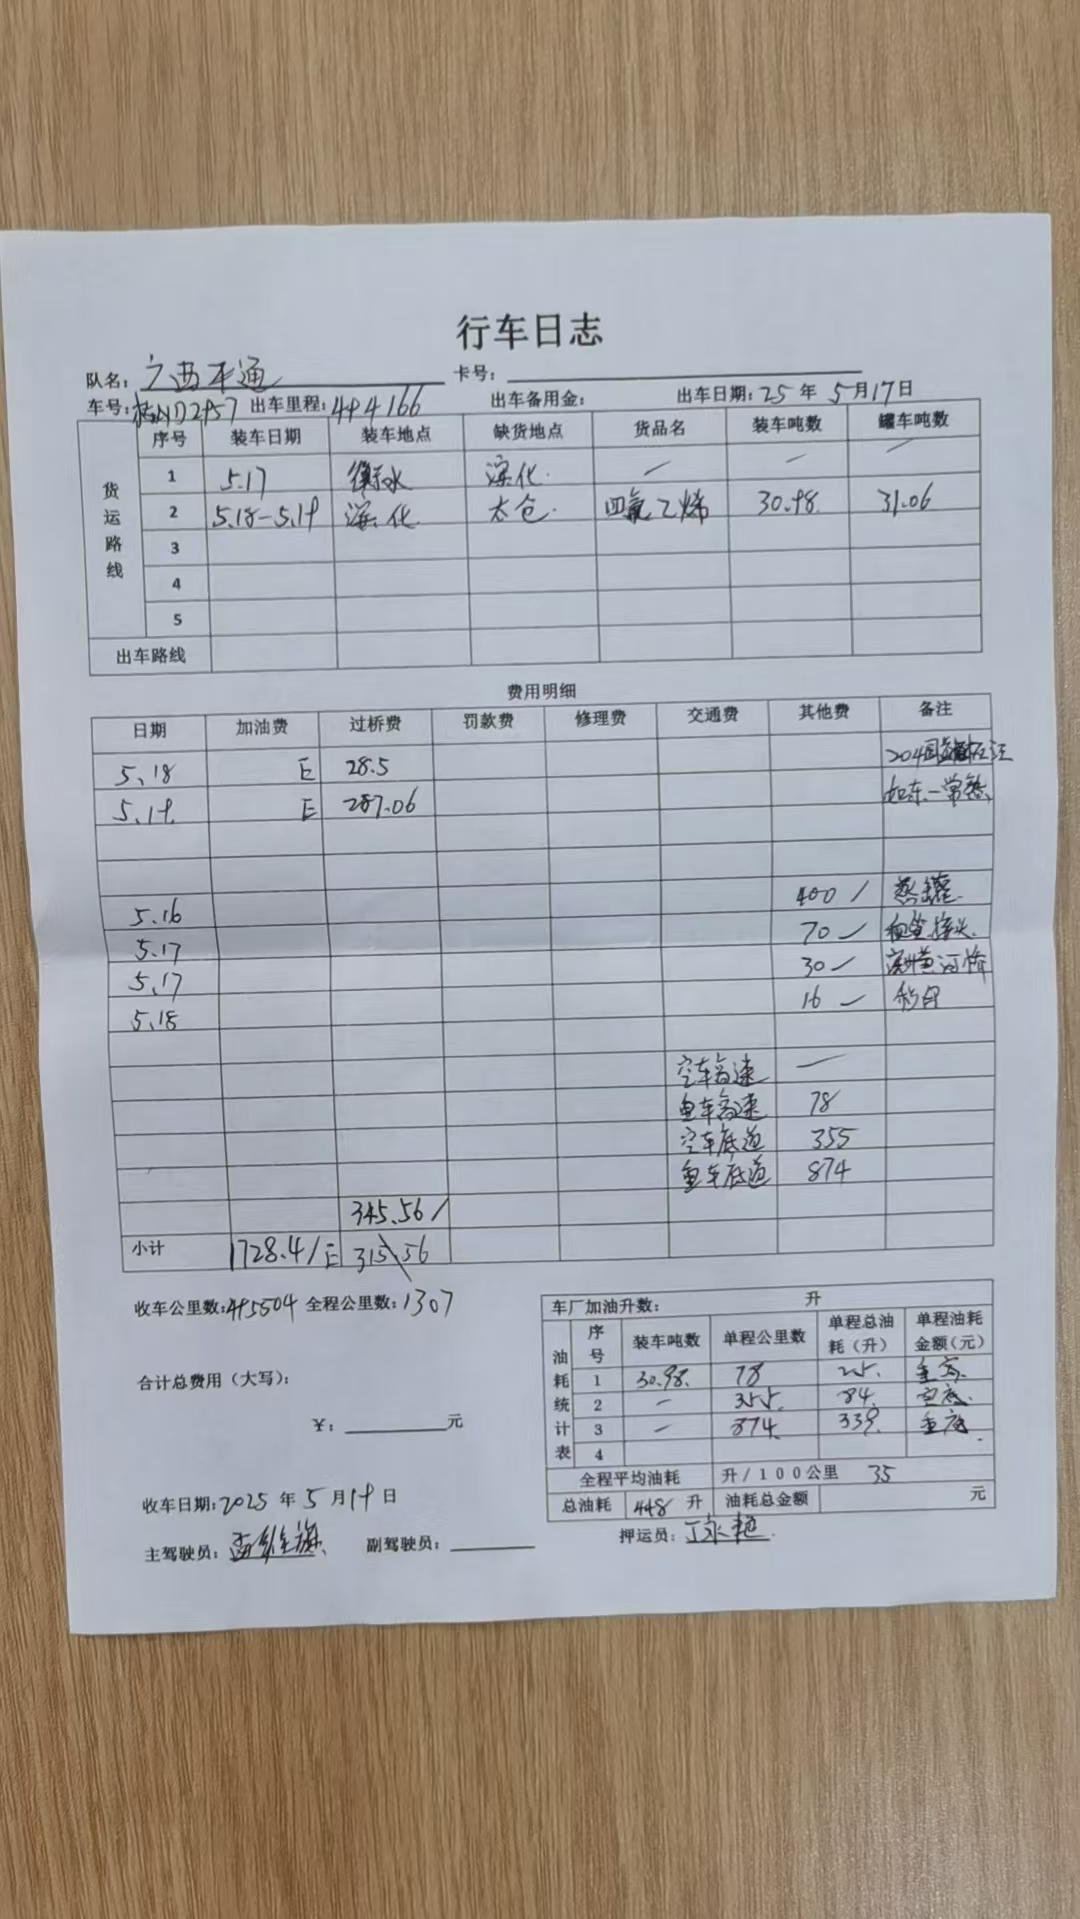 行车日志
队名: 广西平通 卡号:
车号: 桂ND2957 出车里程: 494166 出车备用金: 出车日期: 25 年 5 月 17 日
货运路线 序号 装车日期 装车地点 缺货地点 货品名 装车吨数 罐车吨数
1 5.17 衡水 滨化. — — —
2 5.18-5.19 滨化 太仓. 四氯乙烯 30.98. 31.06
3
4
5
出车路线
费用明细
日期 加油费 过桥费 罚款费 修理费 交通费 其他费 备注
5、18 E 28.5 204国道
5、19. E 287.06 如东—常熟
5.16 400 / 蒸罐.
5.17 70 — 租赁接头.
5.17 30 — 黄河桥
5.18 16 — 秤台
空车高速 —
重车高速 78
空车底道 355
重车底道 874
345.56 /
小计 1728.4/E 315.56
收车公里数: 495504 全程公里数: 1307
合计总费用（大写）:
¥: 元
收车日期: 2025 年 5 月 19 日
主驾驶员: 副驾驶员:
车厂加油升数: 升
油耗统计表 序号 装车吨数 单程公里数 单程总油耗（升） 单程油耗金额(元)
1 30.98. 78 25. 重高.
2 — 355. 84. 空底.
3 — 874. 339. 重底
4
全程平均油耗 升/100公里 35
总油耗 448 升 油耗总金额 元
押运员: